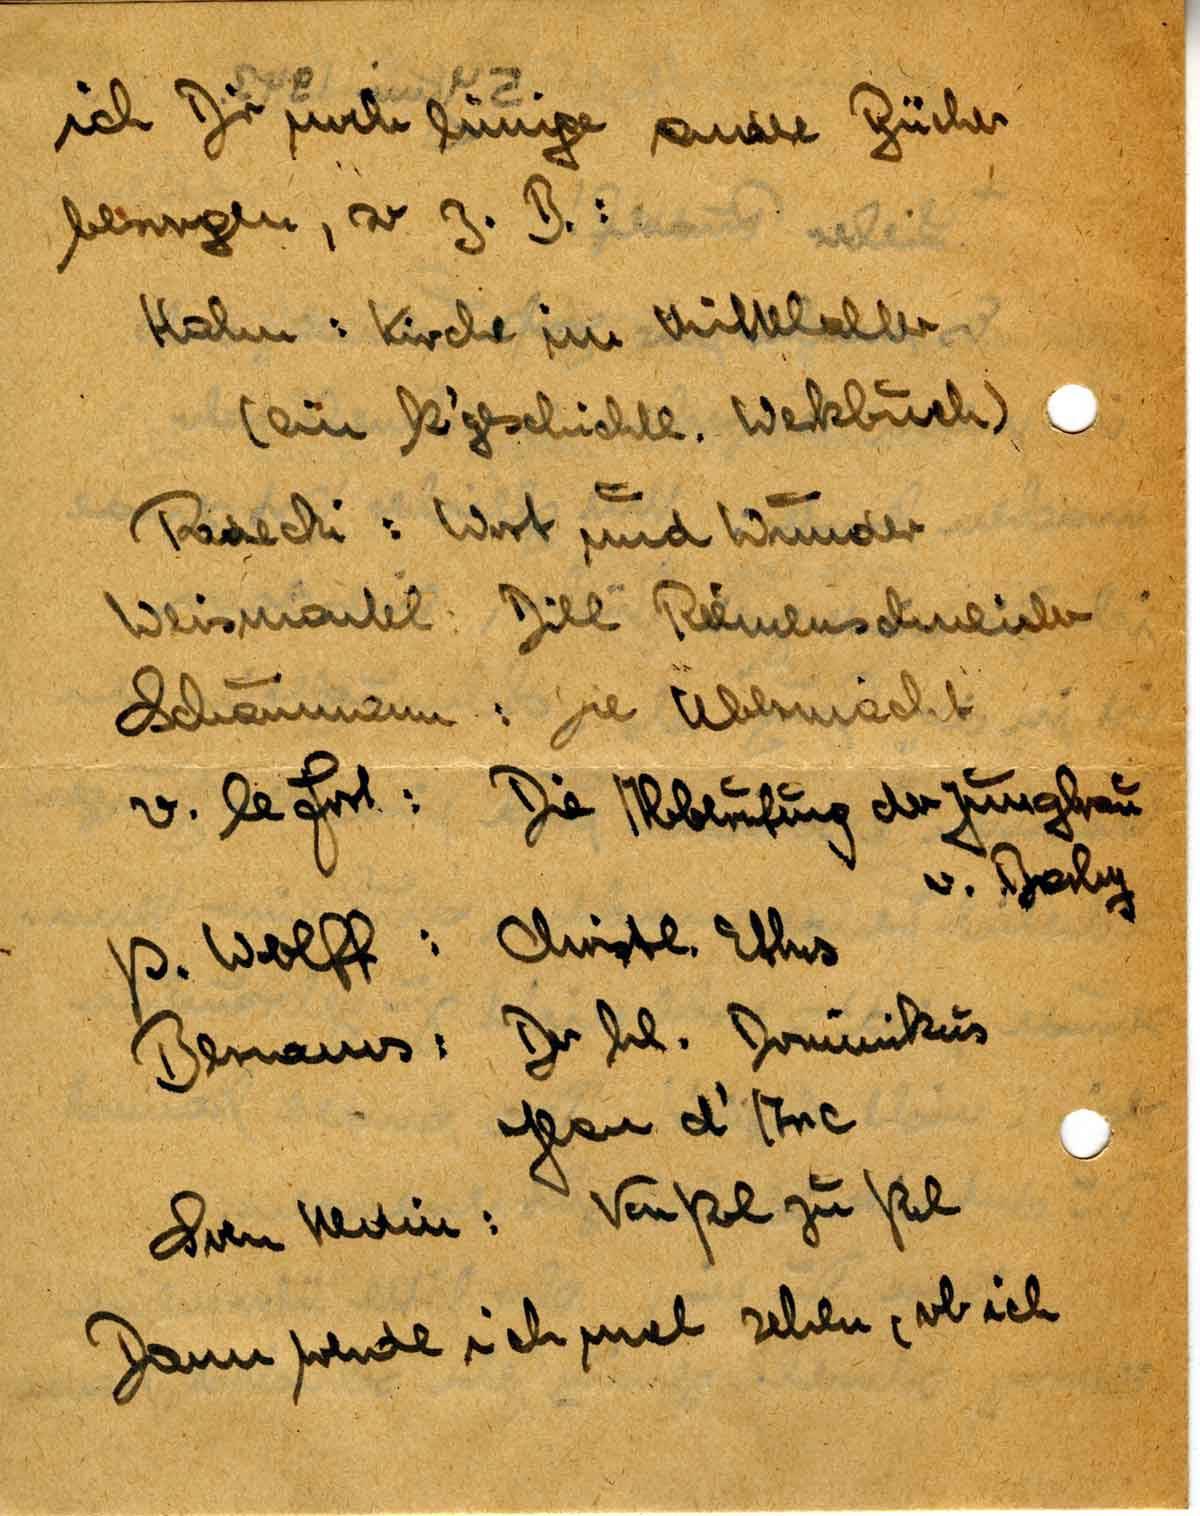 ich Dir noch einige andere Bücher
besorgen, so z. B.:
Hahn: Kirche im Mittelalter
(ein K'geschichtl. Werkbuch)
Radecki: Wort und Wunder
Weismantel: Dill Riemenschneider
Schaumann: Die Übermacht
v. le Fort: Die Abberufung der Jungfrau
v. Barby
P. Wolff: Christl. Ethos
Bernanos: Der hl. Dominikus
Jean d'Arc
Sven Hedin: Von Pol zu Pol
Dann werde ich mal sehen, ob ich